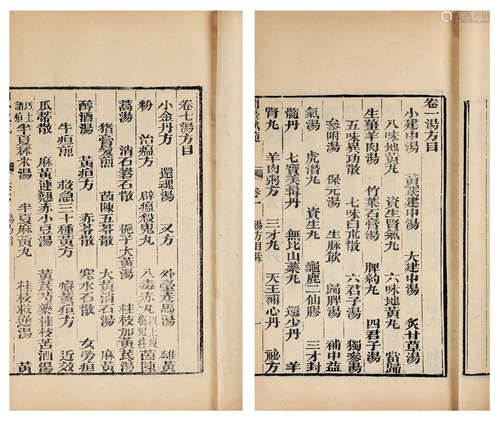 卷一湯方目
小建中湯 黃芪建中湯 大建中湯 炙甘草湯
八味地黃丸 資生腎氣丸 六味地黃丸 當歸
生薑羊肉湯 竹葉石膏湯 脾約丸 四君子湯
五味異功散 七味白朮散 六君子湯 獨參湯
參咐湯 保元湯 生脈飲 歸脾湯 補中益
氣湯 虎潛丸 資生丸 龜鹿二仙膠 三才封
髓丹 七寶美髯丹 無比山藥丸 還少丹 羊
腎丸 羊肉粥方 三才丸 天王補心丹 祕方
卷一 湯方目錄
卷七湯方目
小金丹方 還魂湯 又方 外臺走馬湯 雄黃
粉 治瘟方 辟瘟殺鬼丸 八毒赤丸 茵陳
蒿湯 消石礬石散 梔子大黃湯 桂枝加黃芪湯
豬膏髮煎 茵陳五苓散 大黃消石湯 麻黃
醇酒湯 黃疸方 赤苓散 寒水石散 女勞疸
牛疸煎 救急三十種黃方 療黃疸方 近效
瓜蒂散 麻黃連翹赤小豆湯 黃芪芍藥桂枝苦酒湯
以上諸疸 半夏秫米湯 半夏麻黃丸 桂枝救逆湯 黃